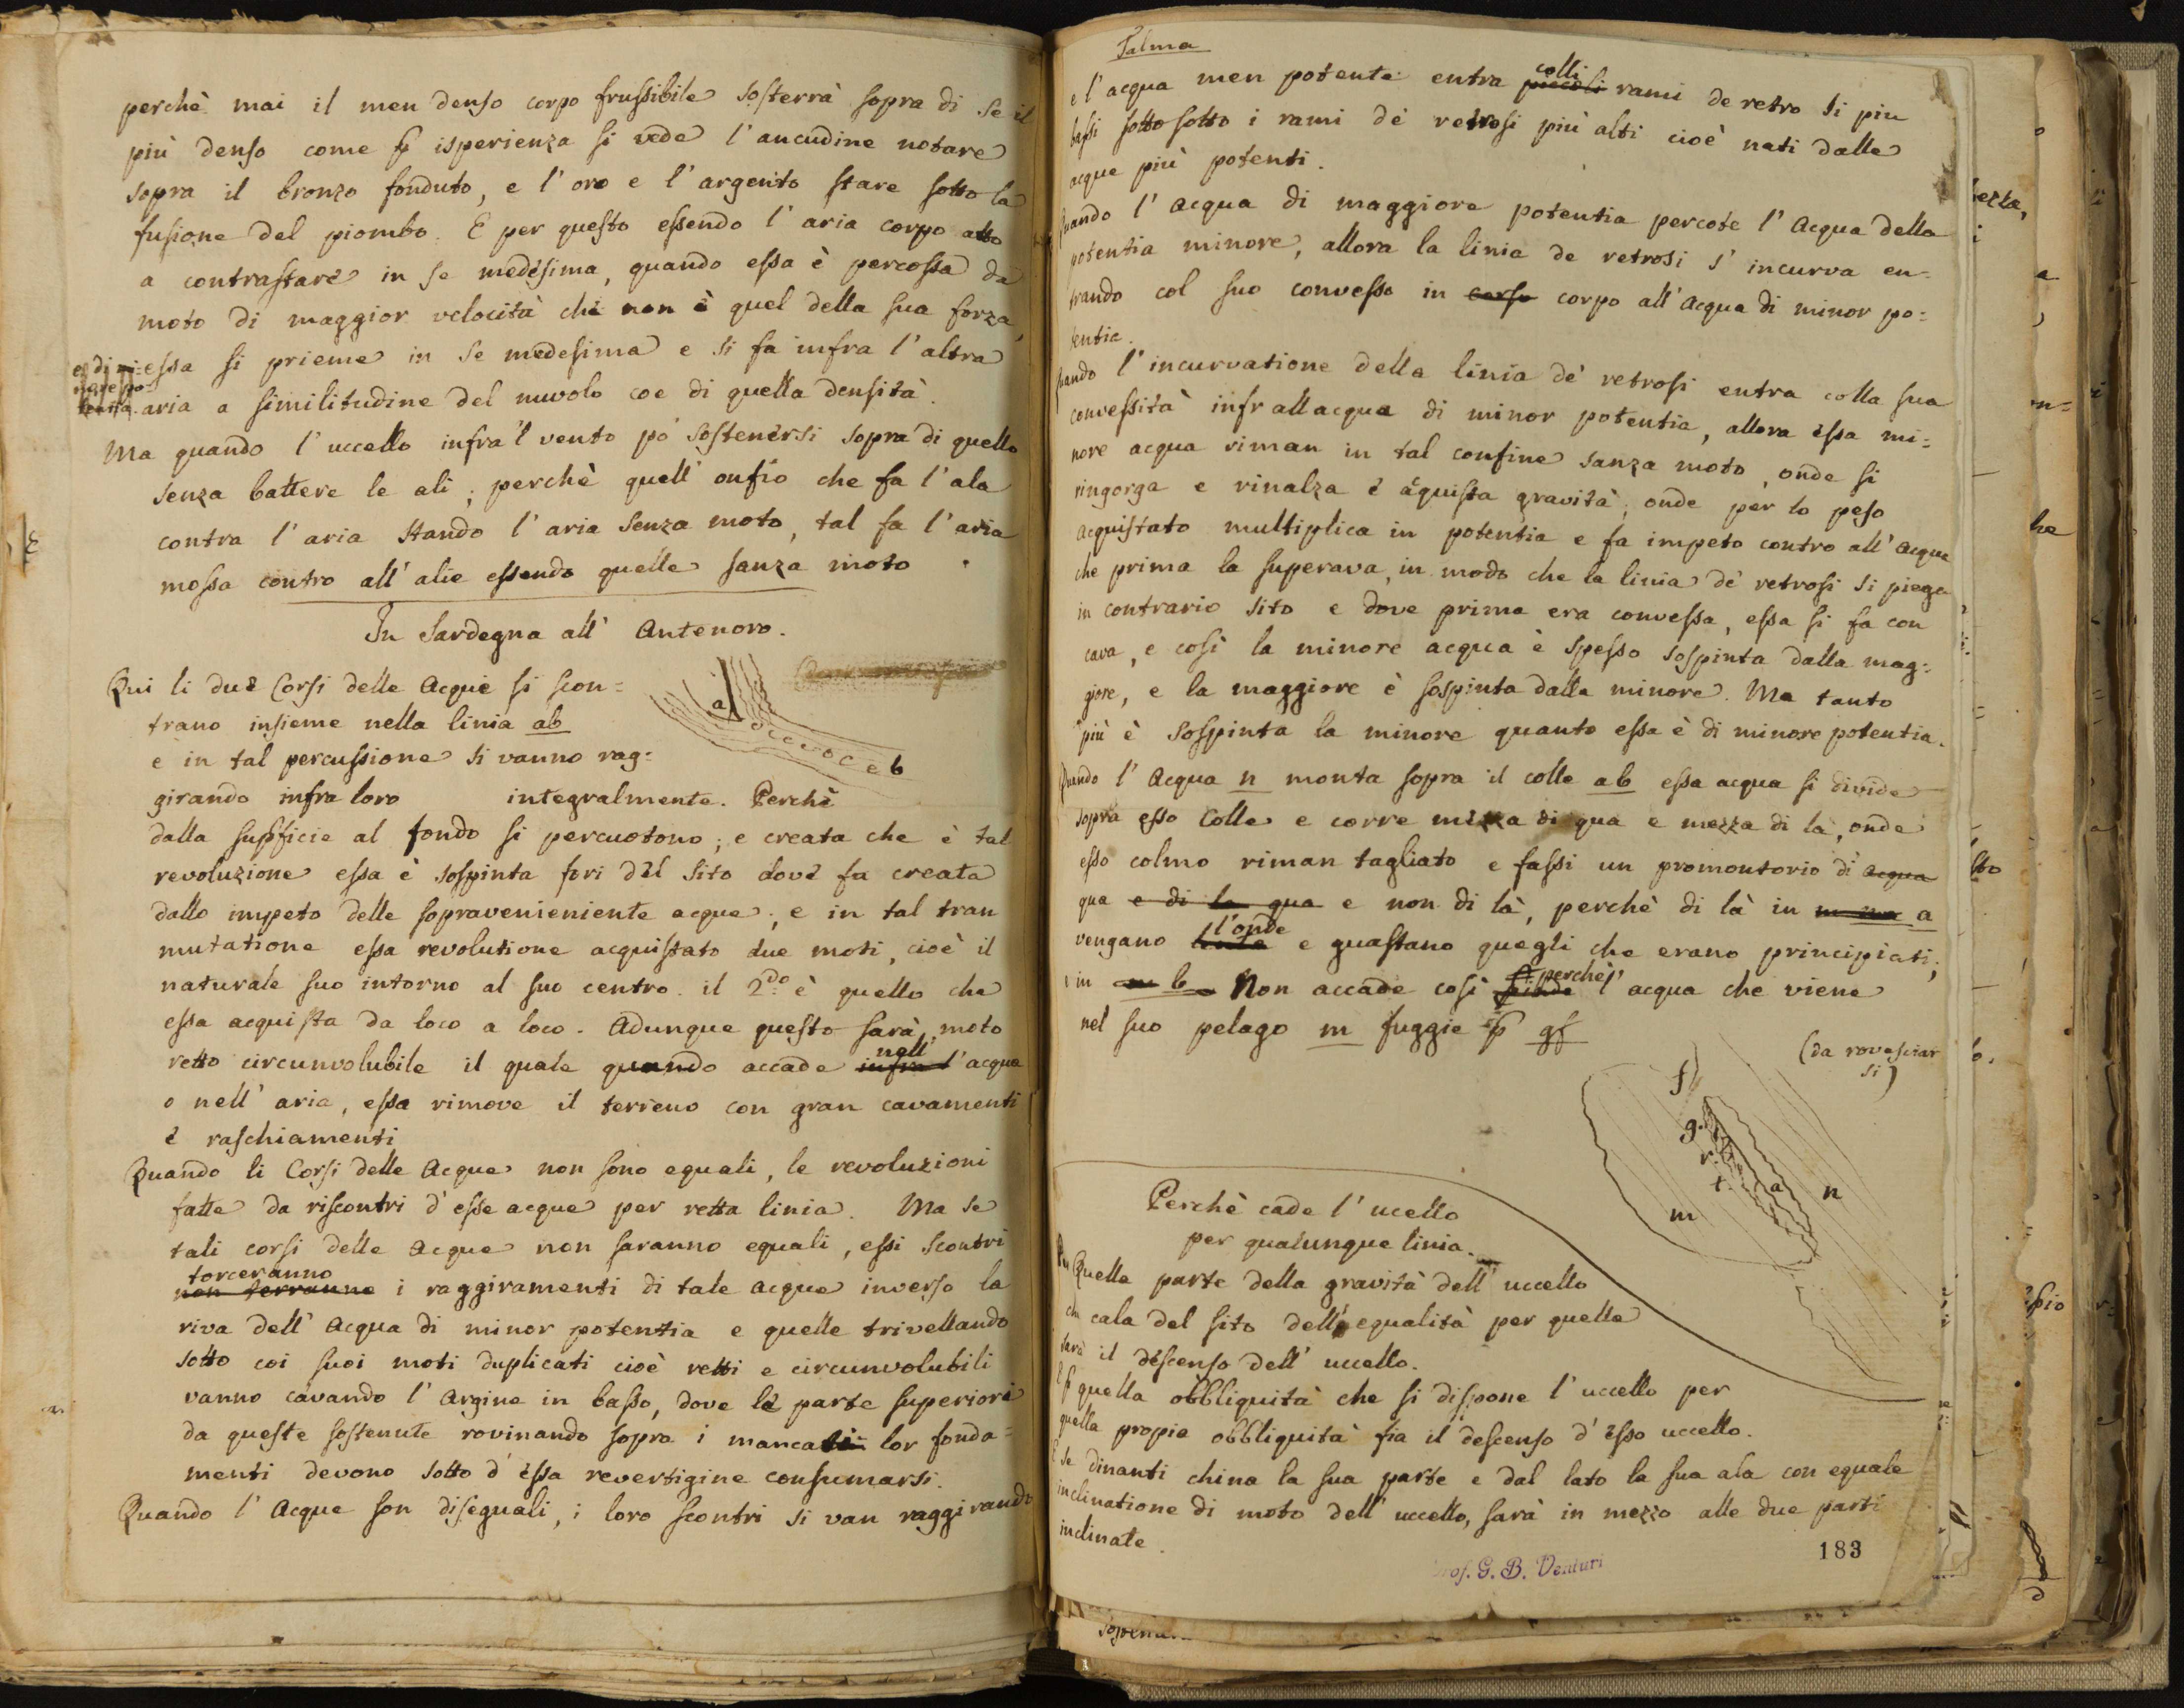 perchè mai il men denso corpo frussibile sosterrà sopra di se il
più denso come p isperienza si vede l'ancudine notare
sopra il bronzo fonduto, e l'oro e l'argento stare sotto la
fusione del piombo. E per questo essendo l'aria corpo atto
a contrastare in se medesima, quando essa è percossa da
moto di maggior velocità che non è quel della sua forza,
essa si prieme in se medesima e si fa infra l'altra
aria a similitudine del nuvolo coe di quella densità.
Ma quando l'uccello infra'l vento pò sostenersi sopra di quello
senza battere le ali; perchè quell' onfio che fa l'ala
contra l'aria stando l'aria senza moto, tal fa l'aria
mossa contro all' alie essendo quelle sanza moto.
In Sardegna all' Antenoro.
Qui li due Corsi delle Acque si scon=
trano insieme nella linia ab
e in tal percussione si vanno rag=
girando infra loro integralmente. Perchè
a
b
dalla supficie al fondo si percuotono; e creata che è tal
revoluzione essa è sospinta fori del sito dove fa creata
dallo impeto delle sopravenieniente acque; e in tal tran
mutatione essa revolutione acquistato due moti, cioè il
naturale suo intorno al suo centro. il 2do è quello che
essa acquista da loco a loco. Adunque questo sarà moto
retto circunvolubile il quale quando accade infra nell' l'acqua
o nell' aria, essa rimove il terreno con gran cavamenti
e raschiamenti
Quando li Corsi delle Acque non sono equali, le revoluzioni
fatte da riscontri d'esse acque per retta linia. Ma se
tali corsi delle Acque non saranno equali, essi scontri
torceranno
non terranno i raggiramenti di tale acque inverso la
riva dell' Acqua di minor potentia e quelle trivellando
sotto coi suoi moti duplicati cioè retti e circunvolubili
vanno cavando l'Argine in basso, dove le parte superiori
da queste sostenute rovinando sopra i mancati lor fonda=
menti devono sotto d'essa revertigine consumarsi.
Quando l'Acque son diseguali, i loro scontri si van raggirando
Palma
e l'acqua men potente entra piccoli colli rami de retro si più
bassi sotto sotto i rami de retrosi più alti cioè nati dalle
acque più potenti.
Quando l'Acqua di maggiore potentia percote l'Acqua della
potentia minore, allora la linia de retrosi s'incurva en=
trando col suo convesso in corso corpo all'Acqua di minor po=
tentia.
Quando l'incurvatione della linia de' retrosi entra colla sua
convessità infrallacqua di minor potentia, allora essa mi=
nore acqua riman in tal confine sanza moto, onde si
ringorga e rinalza e aquista gravità; onde per lo peso
acquistato multiplica in potentia e fa impeto contro all'Acqua
che prima la superava, in modo che la linia de' retrosi si piega
in contrario sito e dove prima era convessa, essa si fa con
cava, e così la minore acqua è spesso sospinta dalla mag=
giore, e la maggiore è sospinta dalla minore. Ma tanto
più è sospinta la minore quanto essa è di minore potentia.
Quando l'Acqua n monta sopra il colle ab essa acqua si divide
sopra esso Colle e corre mezza di qua e mezza di là, onde
esso colmo riman tagliato e fassi un promontorio di acqua
qua e di la qua e non di là, perchè di là in a
vengano l'onde e guastano quegli che erano principiati;
in b Non accade così perchè l'acqua che viene
nel suo pelago m fuggie p gf
(da rovesciar
si)
f
g.
r.
t.
a
n
m
Perchè cade l'ucello
per qualunque linia.
Quella parte della gravità dell' uccello
cala del sito dell'equalità per quella
sarà il descenso dell' uccello.
E p quella obbliquità che si dispone l'uccello per
quella propia obbliquità fia il descenso d'esso uccello.
E se dinanti china la sua parte e dal lato la sua ala con equale
inclinatione di moto dell' uccello, sarà in mezzo alle due parti
inclinate.
Prof. G. B. Venturi
183